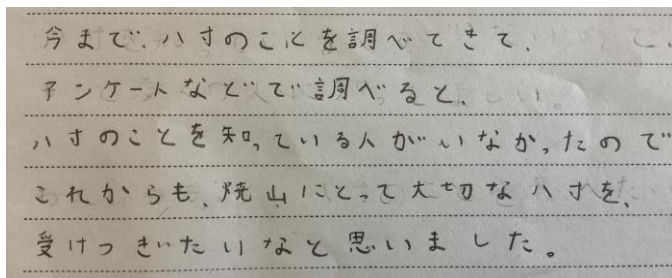 今まで、ハ寸のことを調べてきて、
アンケートなどで調べると、
ハ寸のことを知っている人がいなかったので
これからも、焼山にとって大切なハ寸を、
受けつぎたいなと思いました。